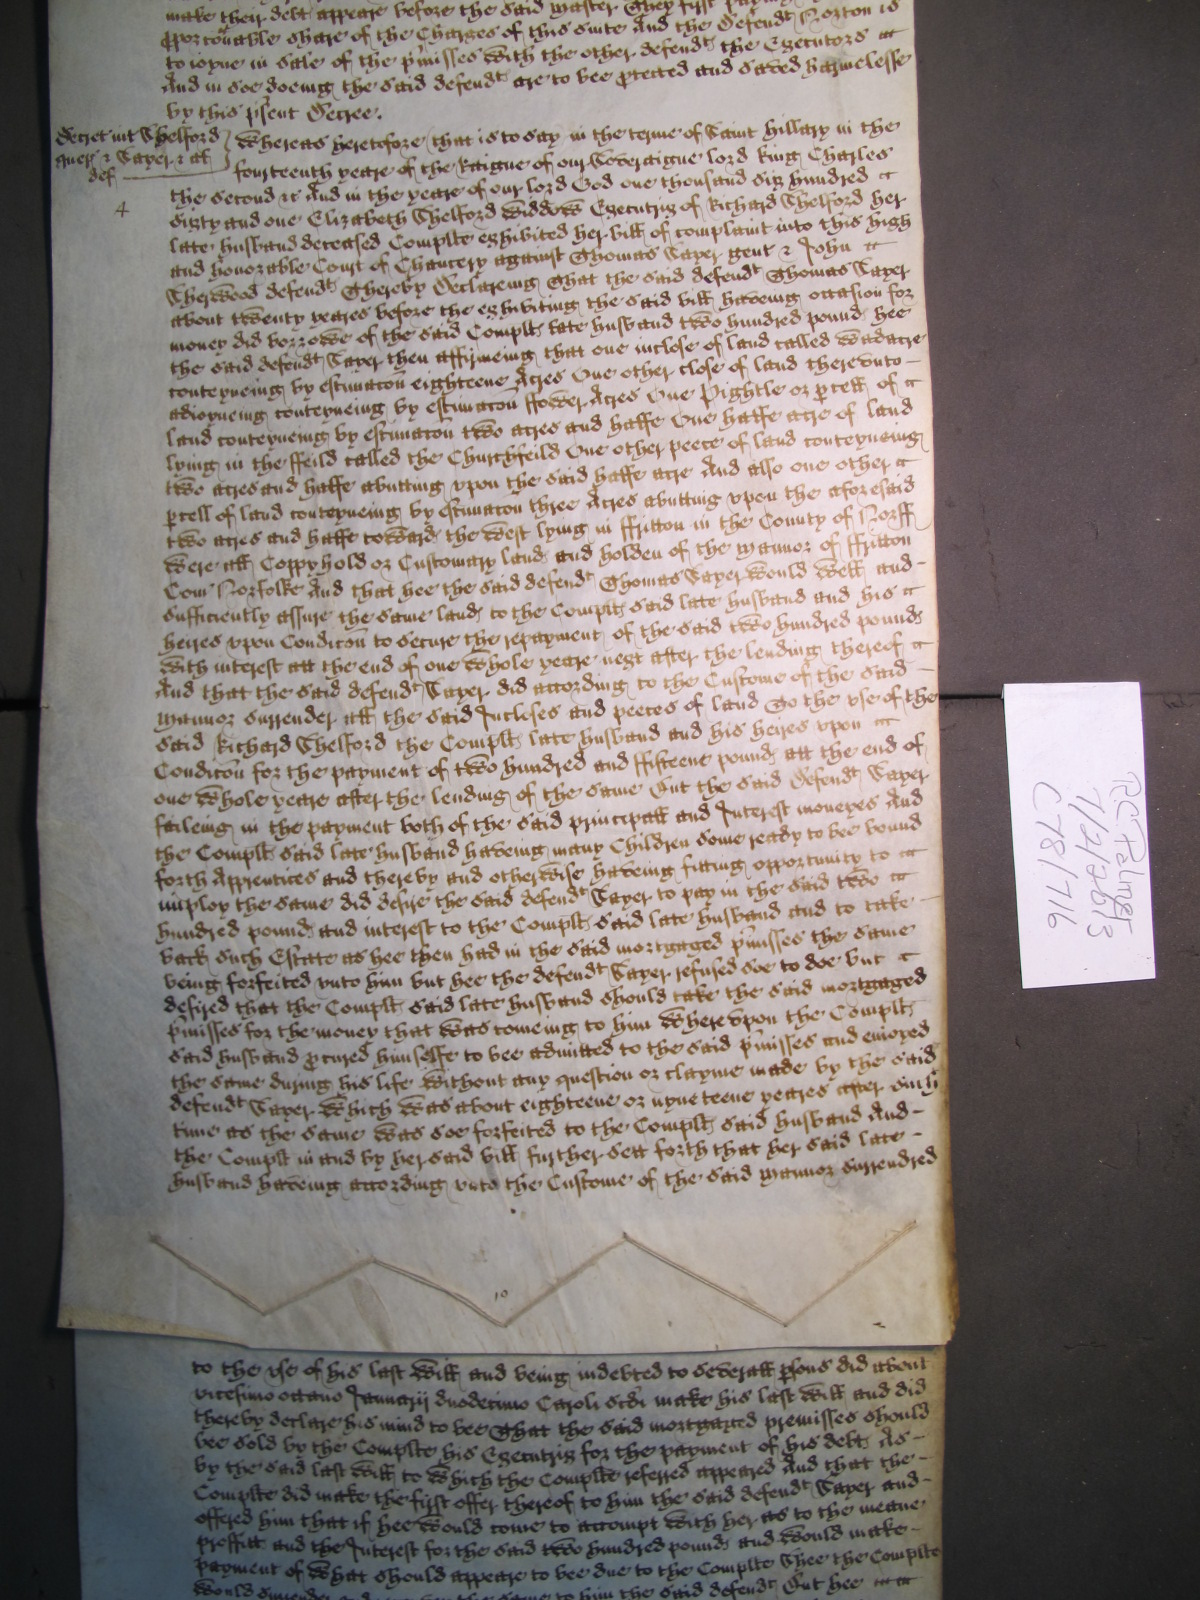 make their debt appeare before the said Master They first paying
pporconable share of the Charges of this suite And the Defendt Norton is
to ioyne in sale of the p̃misses with the other defendts the Executors
And in soe doeing the said defendts are to bee ptected and saved harmelesse
by this p̃sent Decree.
Decret int Thelford
quer & Taper & al
def
4
Whereas heretofore that is to say in the terme of Saint Hillary in the
fourteenth yeare of the Raigne of our Soveraigne lord King Charles
the second &c And in the yeare of our lord God one thousand six hundred
sixty and one Elizabeth Thelford Widdow Executrix of Richard Thelford her
late husband deceased Complte exhibited her bill of complaint into this high
and honorable Court of Chancery against Thomas Taper gent & John
Therwood defendts Thereby Declareing That the said defendt Thomas Taper
about twenty yeares before the exhibiting the said bill haveing occasion for
money did borrowe of the said Complts late husband two hundred pounds hee
the said defendt Taper then affirmeing that one inclose of land called Wadacre
conteyneing by estimacon eighteene Acres One other close of land therevnto
adioyneing conteyneing by estimacon ffower Acres One Pightle or pcell of
land conteyneing by estimacon two acres and halfe One halfe acre of land
lying in the ffeild called the Churchfeild One other peece of land conteyneing
two acres and halfe abutting vpon the said halfe acre And also one other
pcell of land conteyneing by estimacon three Acres abutting vpon the aforesaid
two acres and halfe towards the West lying in ffritton in the County of Norff
were all Coppyhold or Customary lands and holden of the Mannor of ffritton
Com Norfolke And that hee the said defendt Thomas Taper would well and
sufficiently assure the same lands to the Complts said late husband and his
heires vpon Condicon to secure the repayment of the said two hundred pounds
with interest att the end of one whole yeare next after the lending thereof
And that the said defendt Taper did according to the Custome of the said
Mannor surrender all the said Incloses and peeces of land To the vse of the
said Richard Thelford the Complts late husband and his heires vpon
Condicon for the payment of two hundred and ffifteene pounds att the end of
one whole yeare after the lending of the same But the said Defendt Taper
faileing in the payment both of the said principall and Interest moneyes And
the Complts said late husband haveing many Children some ready to bee bound
forth Apprentices and thereby and otherwise haveing fitting opportunity to
imploy the same did desire the said defendt Taper to pay in the said two
hundred pounds and interest to the Complts said late husband and to take
back such Estate as hee then had in the said mortgaged p̃misses the same
being forfeited vnto him but hee the defendt Taper refused soe to doe but
desired that the Complts said late husband should take the said mortgaged
p̃misses for the money that was comeing to him Wherevpon the Complts
said husband pcured himselfe to bee admitted to the said p̃misses and enioyed
the same during his life without any question or clayme made by the said
defendt Taper which was about eighteene or nyneteene yeares after such
time as the same was soe forfeited to the Complts said husband And
the Complt in and by her said bill further sett forth that her said late
husband haveing according vnto the Custome of the said Mannor surrendred
10
to the vse of his last will and being indebted to severall psons did about
vicesimo octavo Januarij duodecimo Caroli scdi make his last will and did
thereby declare his mind to bee That the said mortgaged premisses should
bee sold by the Complte his Executrix for the payment of his debts As
by the said last will to which the Complte referred appeared And that the
Complte did make the first offer thereof to him the said defendt Taper and
offered him that if hee would come to accompt with her as to the meane
proffitts and the Interest for the said two hundred pounds and would make
payment of what should appeare to bee due to the Complte Shee the Complte
would surrender the same to him the said defendt But hee
RC Palmer
7/2/2013
C78/716